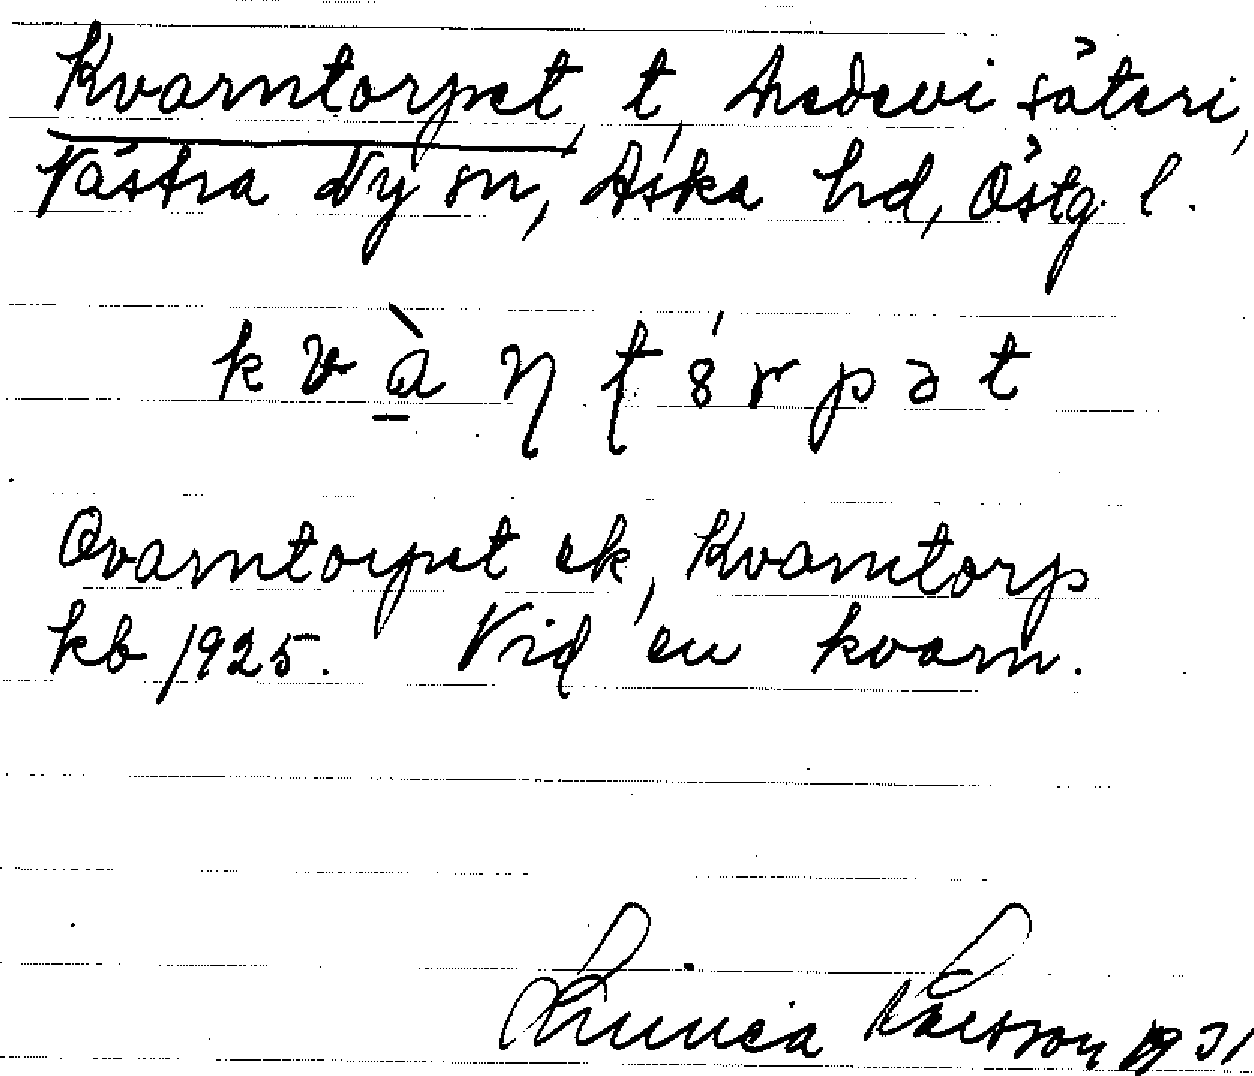 Kvarntorpet, t, Medevi säteri,
Västra Ny sn, Aska hd, Östg. l.
k v à̱ ɳ ʈ 8́ r p ə t
Qvarntorpet ek, Kvarntorp
kb 1925. Vid en kvarn.
Linnéa Larsson 1931